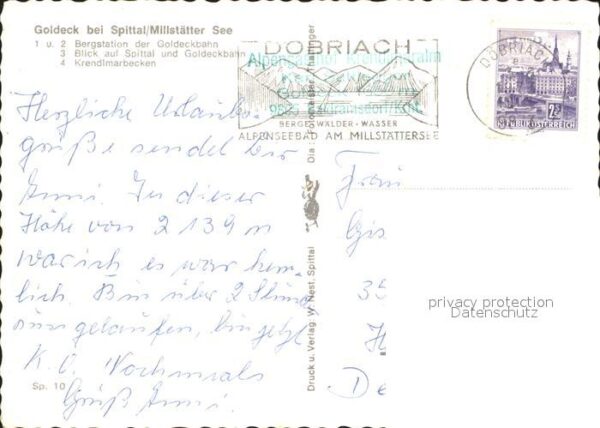 Goldeck bei Spittal/Millstätter See
1 u. 2 Bergstation der Goldeckbahn
3 Blick auf Spittal und Goldeckbahn
4 Krendlmarbecken
DÖBRIACH
BERGE · WÄLDER · WASSER
ALPENSEEBAD AM MILLSTÄTTERSEE
DÖBRIACH
REPUBLIK ÖSTERREICH
Herzliche Urlaubs-
grüße sendet dir
Anni. In dieser
Höhe von 2 139 m
war ich es war herr-
lich. Bin über 2 Stund
gelaufen, bin jetzt
K.O. Nochmals
Gruß Anni.
Sp. 10
Druck u. Verlag W. Nest, Spittal
Frau
Gis
35
H
De
privacy protection
Datenschutz